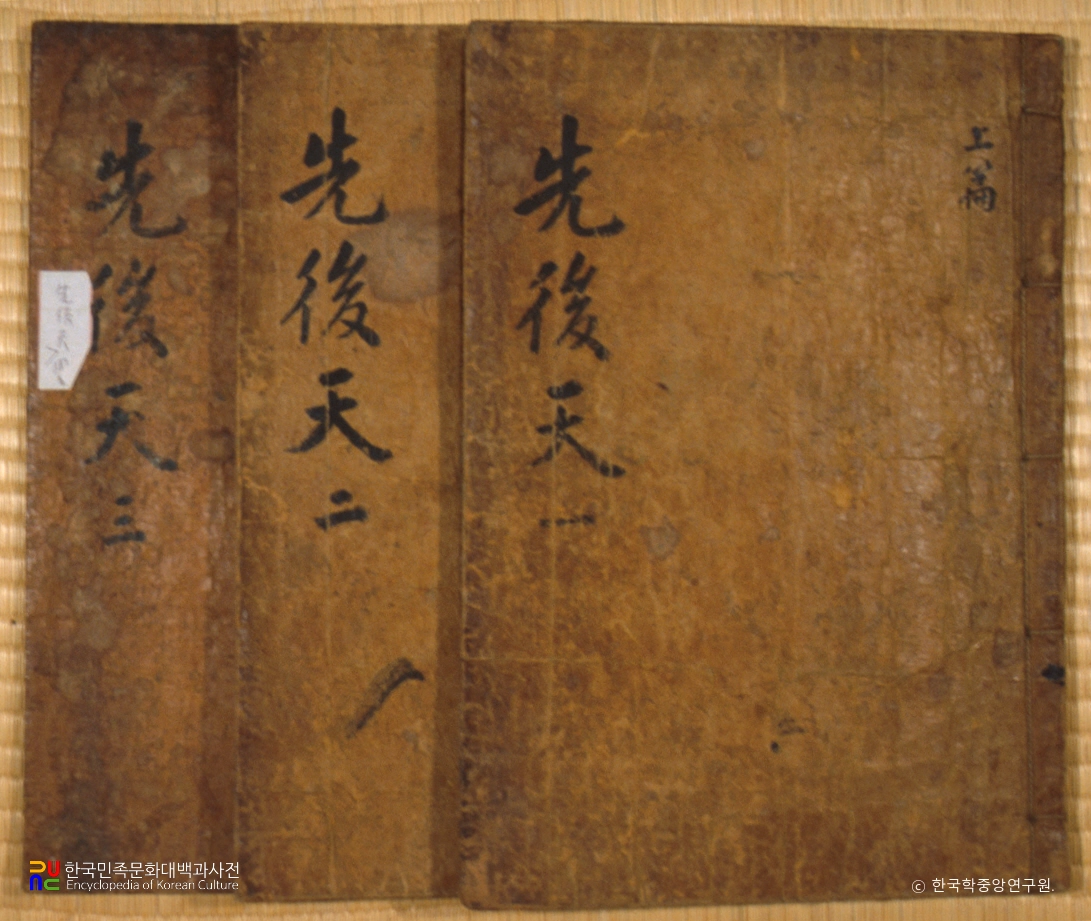 上篇
先後天 一
先後天 二
先後天 三
先後天
한국민족문화대백과사전
Encyclopedia of Korean Culture
© 한국학중앙연구원.